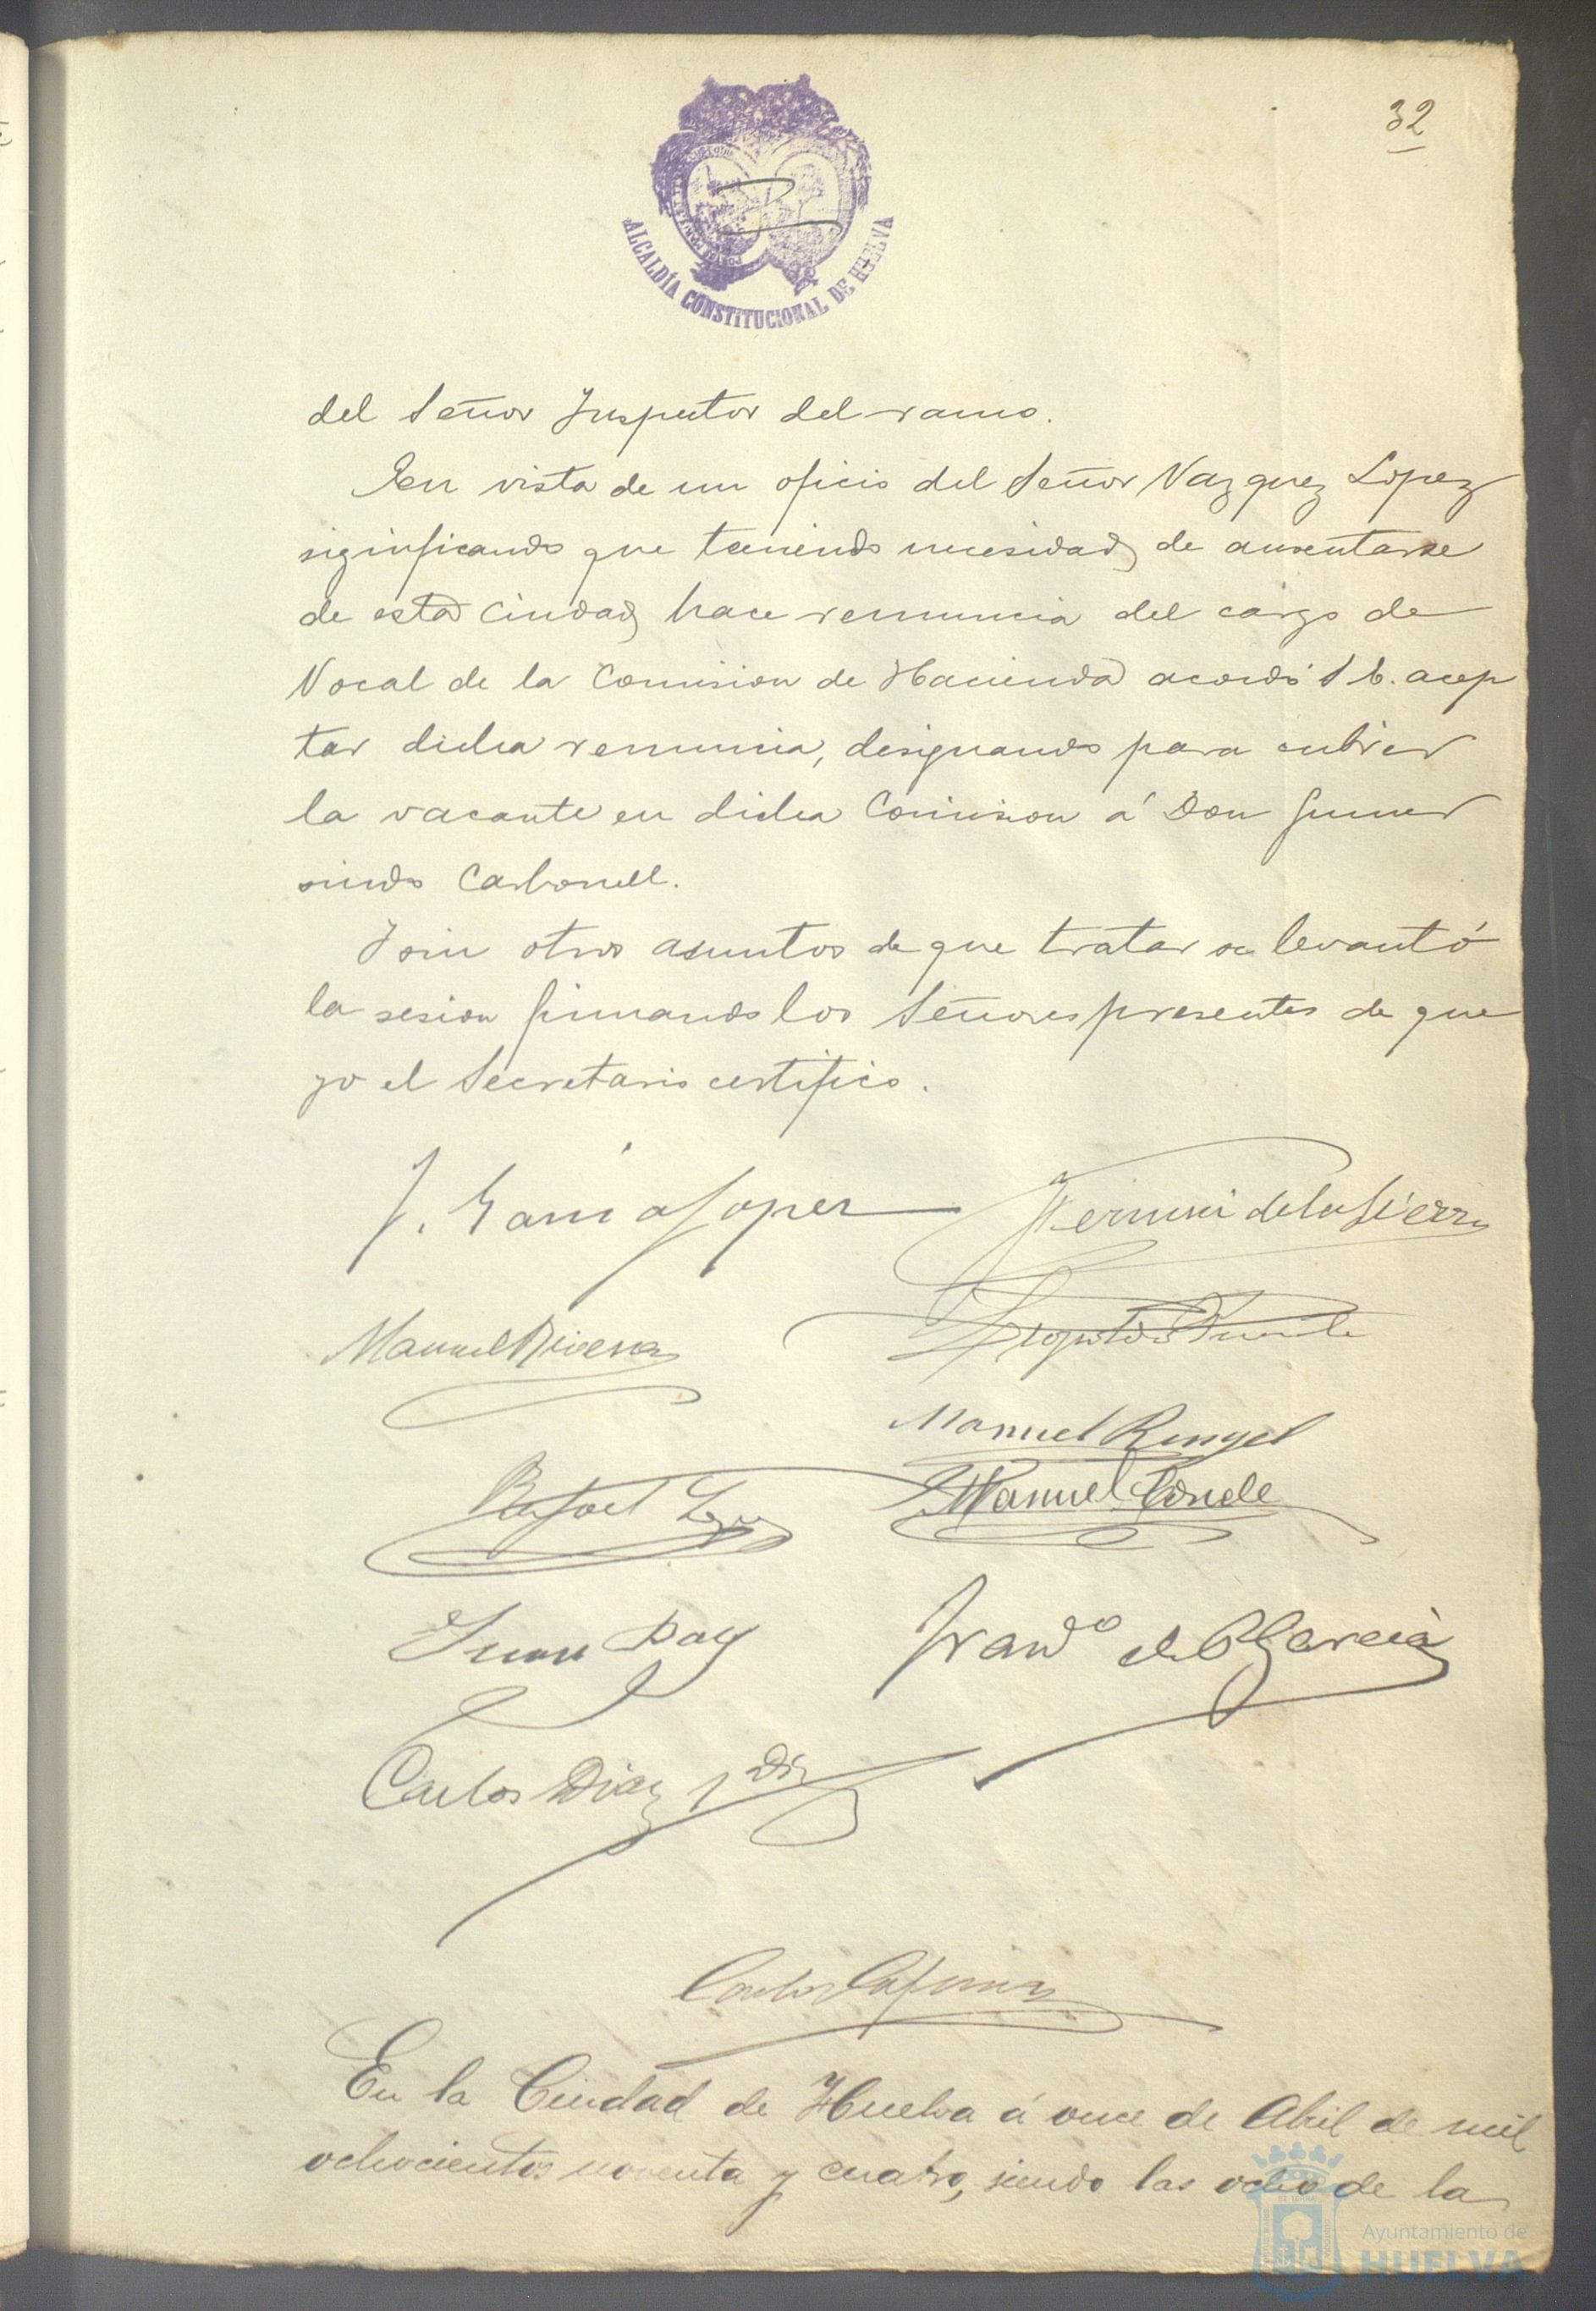 32
ALCALDÍA CONSTITUCIONAL DE HUELVA
del Señor Inspector del ramo.
En vista de un oficio del Señor Vazquez Lopez
siginficando que teniendo necesidad de ausentarse
de esta Ciudad, hace renuncia del cargo de
Vocal de la Comision de Hacienda acordó S. E. acep
tar dicha renuncia, designando para cubrir
la vacante en dicha Comision á Don Gumer
sindo Carbonell.
Y sin otros asuntos de que tratar se levantó
la sesion firmando los Señores presentes de que
yo el Secretario certifico.
J. Garcia Lopez
Fermin de la Sierra
Manuel Rivera
Leopoldo
Manuel Rengel
Rafael
Manuel Conde
Juan Day
Franco de P. Garcia
Carlos Diaz
Carlos
En la Ciudad de Huelva á once de Abril de mil
ochocientos noventa y cuatro, siendo las ocho de la
Ayuntamiento de
HUELVA